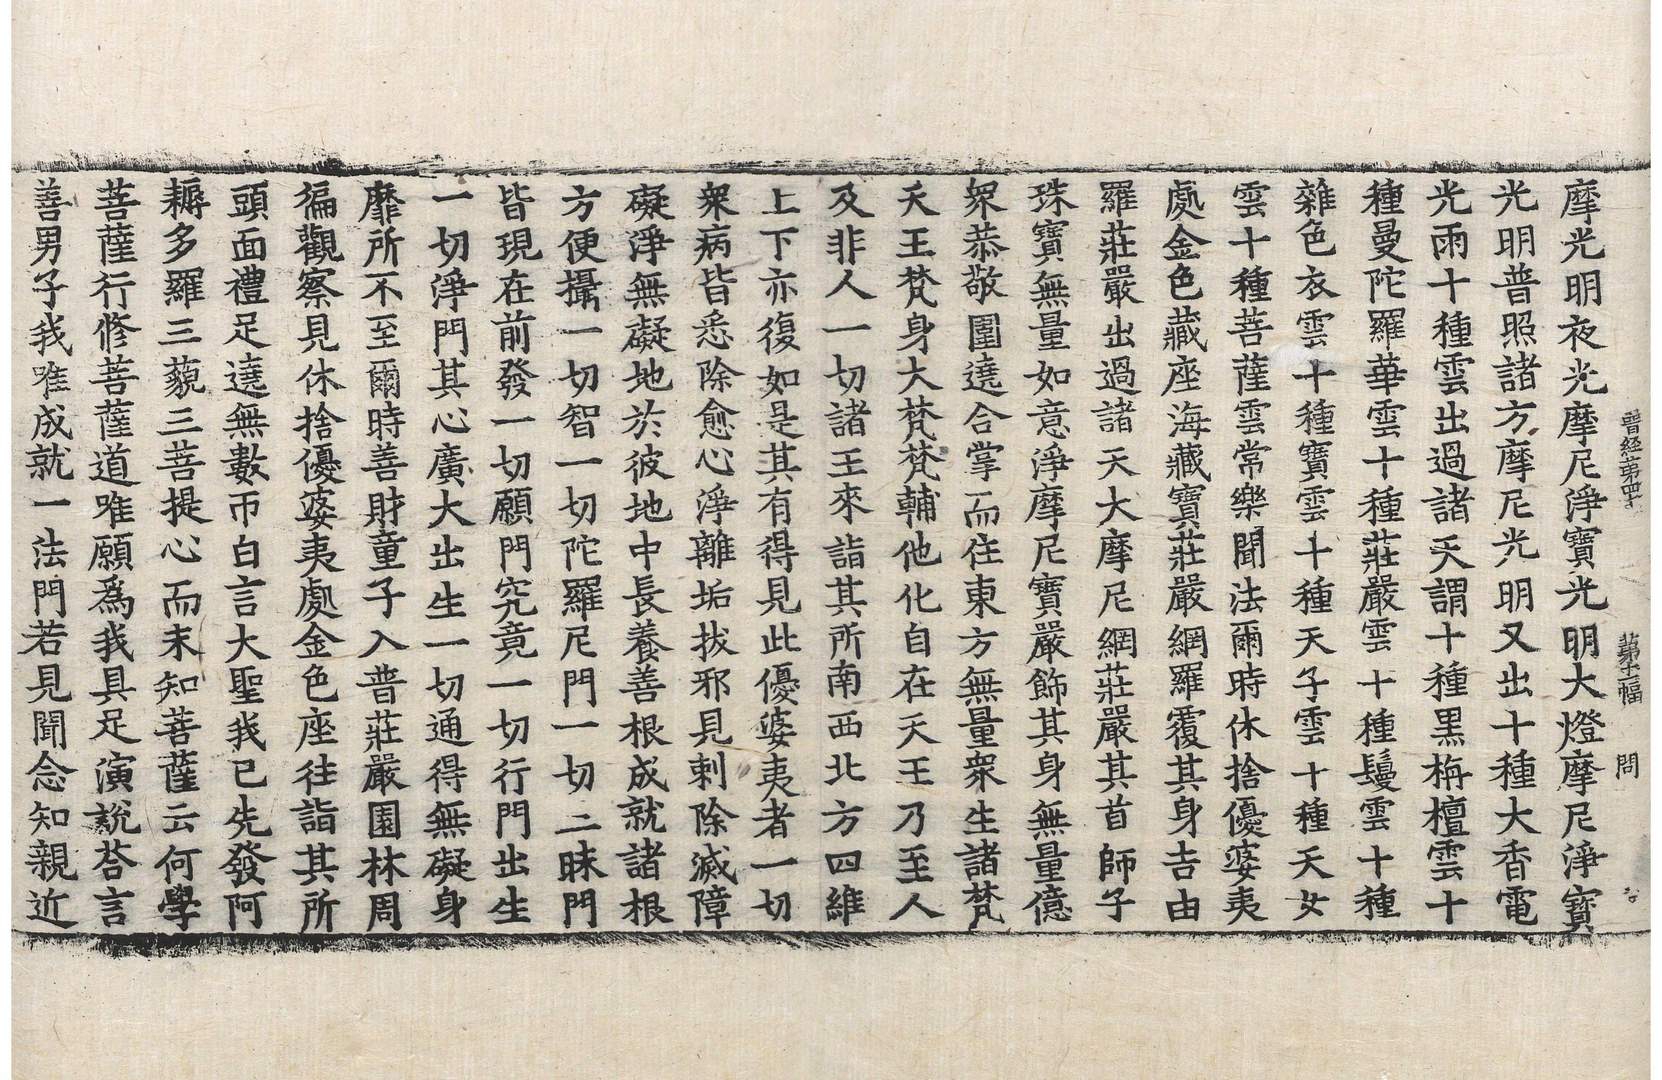 晉經第四十 第十幅 問
摩光明夜光摩尼淨寶光明大燈摩尼淨寶
光明普照諸方摩尼光明又出十種大香電
光雨十種雲出過諸天謂十種黑栴檀雲十
種曼陀羅華雲十種莊嚴雲十種鬘雲十種
雜色衣雲十種寶雲十種天子雲十種天女
雲十種菩薩雲常樂聞法爾時休捨優婆夷
處金色藏座海藏寶莊嚴網羅覆其身吉由
羅莊嚴出過諸天大摩尼網莊嚴其首師子
珠寶無量如意淨摩尼寶嚴飾其身無量億
衆恭敬圍遶合掌而住東方無量衆生諸梵
天王梵身大梵梵輔他化自在天王乃至人
及非人一切諸王來詣其所南西北方四維
上下亦復如是其有得見此優婆夷者一切
衆病皆悉除愈心淨離垢拔邪見刺除滅障
礙淨無礙地於彼地中長養善根成就諸根
方便攝一切智一切陀羅尼門一切三昧門
皆現在前發一切願門究竟一切行門出生
一切淨門其心廣大出生一切通得無礙身
靡所不至爾時善財童子入普莊嚴園林周
徧觀察見休捨優婆夷處金色座往詣其所
頭面禮足遶無數帀白言大聖我已先發阿
耨多羅三藐三菩提心而未知菩薩云何學
菩薩行修菩薩道唯願爲我具足演說荅言
善男子我唯成就一法門若見聞念知親近